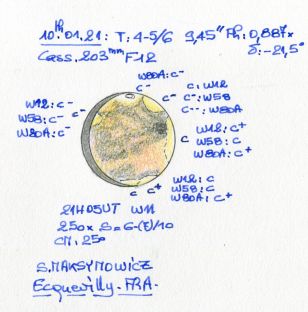 10.01.21: T:4-5/6 9,45" Ph:0,887x
Cass.203mm F12 δ:-21,5°
W80A:C-
C- C:W12
C-:W58
C--:W80A
W12:C-
W58:C-
W80A:C-
C-
W12:C+
C W58:C
W80A:C+
W12:C
C C+ W58:C
W80A:C+
21H05UT W11
250x S=6-(7)/10
CM:25°
S.MAKSYMOWICZ
Ecquevilly.FRA.